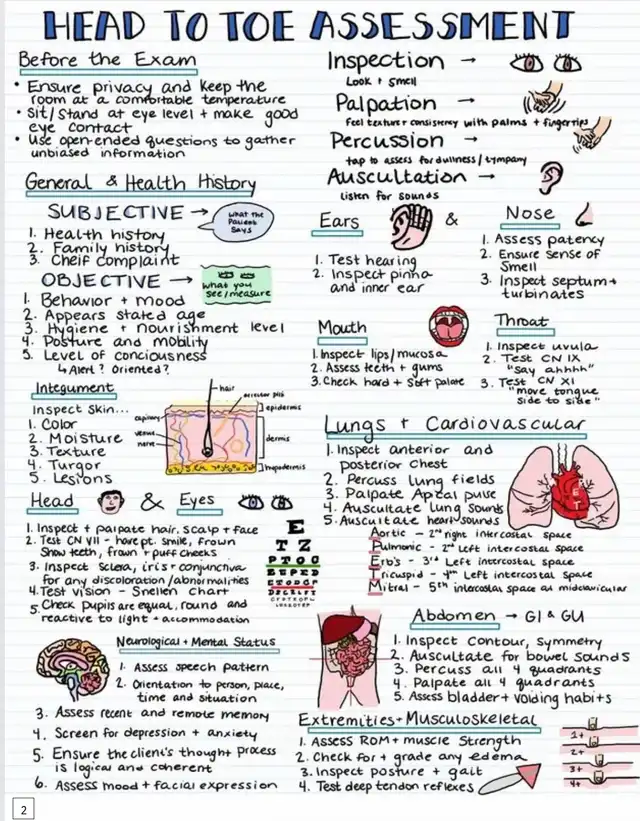 HEAD TO TOE ASSESSMENT
Before the Exam
• Ensure privacy and keep the
room at a comfortable temperature
• Sit/Stand at eye level + make good
eye contact
• Use open-ended questions to gather
unbiased information
Inspection →
Look + smell
Palpation →
Feel texture + consistency with palms + fingertips
Percussion →
tap to assess for dullness / tympany
Auscultation →
listen for sounds
General & Health History
SUBJECTIVE →
what the
Patient
Says
1. Health history
2. Family history
3. Cheif complaint
OBJECTIVE →
what you
see/measure
1. Behavior + mood
2. Appears stated age
3. Hygiene + nourishment level
4. Posture and mobility
5. Level of conciousness
↳ Alert? Oriented?
Ears
&
Nose
1. Test hearing
2. Inspect pinna
and inner ear
1. Assess patency
2. Ensure sense of
smell
3. Inspect septum +
turbinates
Mouth
1. Inspect lips/mucosa
2. Assess teeth + gums
3. Check hard + soft palate
Throat
1. Inspect uvula
2. Test CN IX
"Say ahhhh"
3. Test CN XI
"move tongue
side to side"
Integument
Inspect Skin...
1. Color
2. Moisture
3. Texture
4. Turgor
5. Lesions
hair
arrector pili
epidermis
capillary
venue
nerve
dermis
hypodermis
Lungs + Cardiovascular
1. Inspect anterior and
posterior chest
2. Percuss lung fields
3. Palpate Apical pulse
4. Auscultate lung sounds
5. Auscultate heart sounds
Aortic - 2nd right intercostal space
Pulmonic - 2nd Left intercostal space
Erb's - 3rd Left intercostal space
Tricuspid - 4th Left intercostal space
Mitral - 5th intercostal space at midclavicular
Head & Eyes
1. Inspect + palpate hair, scalp + face
2. Test CN VII - have pt. smile, frown
Show teeth, frown + puff cheeks
3. Inspect Sclera, iris + conjunctiva
for any discoloration/abnormalities
4. Test vision - Snellen Chart
5. Check pupils are equal, round and
reactive to light + accommodation
E
T Z
Neurological + Mental Status
1. Assess speech pattern
2. Orientation to person, place,
time and situation
3. Assess recent and remote memory
4. Screen for depression + anxiety
5. Ensure the client's thought process
is logical and coherent
6. Assess mood + facial expression
Abdomen → GI & GU
1. Inspect Contour, symmetry
2. Auscultate for bowel sounds
3. Percuss all 4 quadrants
4. Palpate all 4 quadrants
5. Assess bladder + voiding habits
Extremities + Musculoskeletal
1. Assess ROM + muscle strength
2. Check for + grade any edema
3. Inspect posture + gait
4. Test deep tendon reflexes
1+
2+
3+
4+
2